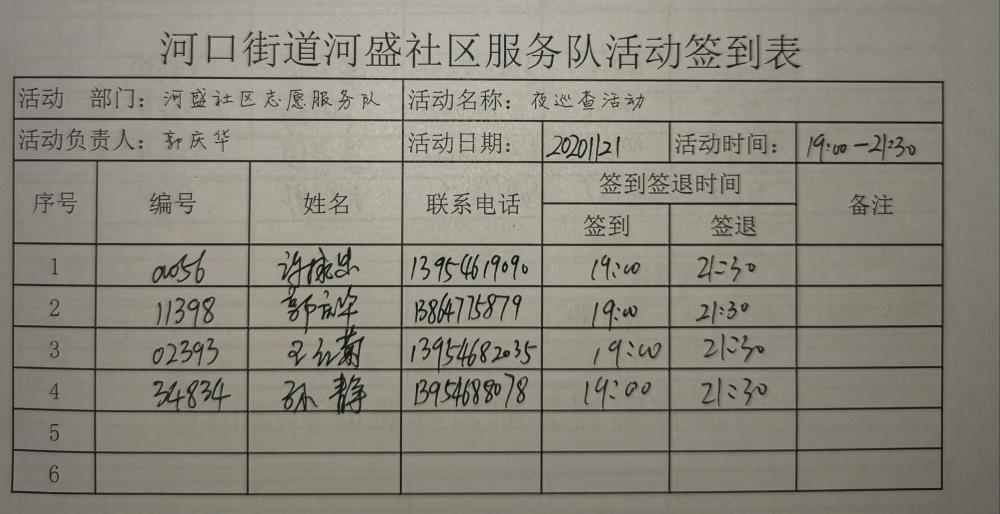 河口街道河盛社区服务队活动签到表
活动 部门：河盛社区志愿服务队 活动名称：夜巡查活动
活动负责人：郭庆华 活动日期：20201121 活动时间：19:00—21:30
序号 编号 姓名 联系电话 签到签退时间 备注
签到 签退
1 00056 13954619090 19:00 21:30
2 11398 郭庆华 13864775879 19:00 21:30
3 02393 王红菊 13954682035 19:00 21:30
4 34834 孙静 13954688078 19:00 21:30
5
6